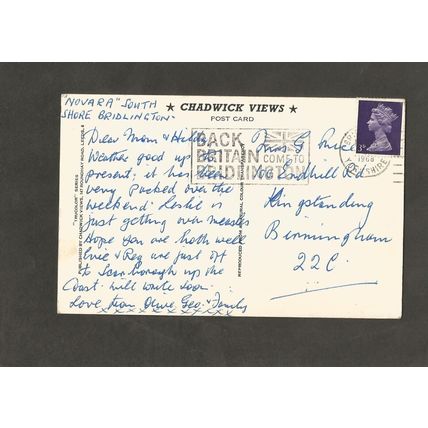 "NOVARA" SOUTH
SHORE BRIDLINGTON
★ CHADWICK VIEWS ★
POST CARD
Dear Mom &
Weather good up to
present; it has been
very packed over the
weekend. Leslie is
just getting over measles
Hope you are both well
Evie & Reg are just off
to Scarborough up the
Coast. Will write soon.
Love from Olive Geo. & Family
xxxxxxxxxx
"TRUCOLOR" SERIES
PUBLISHED BY CHADWICK VIEWS, 147 ROUNDHAY ROAD, LEEDS, 8
BACK
BRITAIN
COME TO
BRIDLINGTON
1968
YORKSHIRE
3
Mrs G
Rd
Kingstanding
Birmingham
22C.